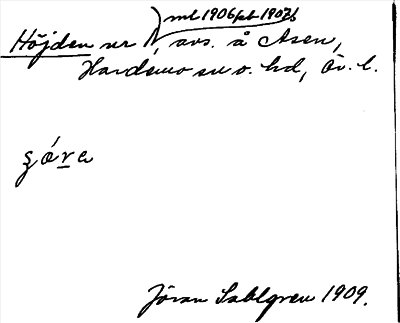 ml 1906 feb 1907b
Höjden nr 1, avs. å Åsen,
Hardemo sn o. hd, Ör. l.
Jöran Sahlgren 1909.